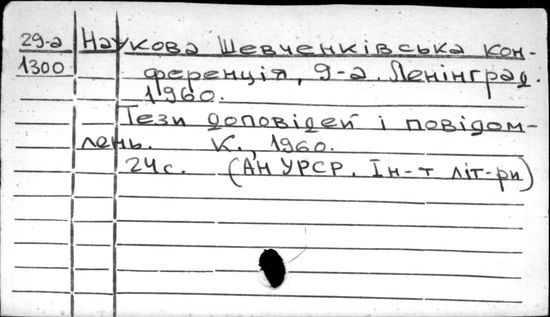 29-а Наукова Шевченківська кон-
1300 ференція, 9-а. Ленінград.
1960.
Тези доповідей і повідом-
лень. К., 1960.
24с. (АН УРСР. Ін-т літ-ри)